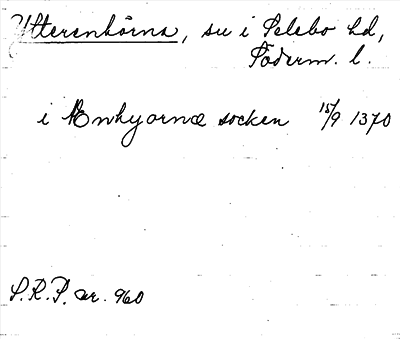 Ytterenhörna, sn i Selebo hd,
Söderm. l.
i Ænhyornæ socken 15/9 1370
S.R.P. nr. 960